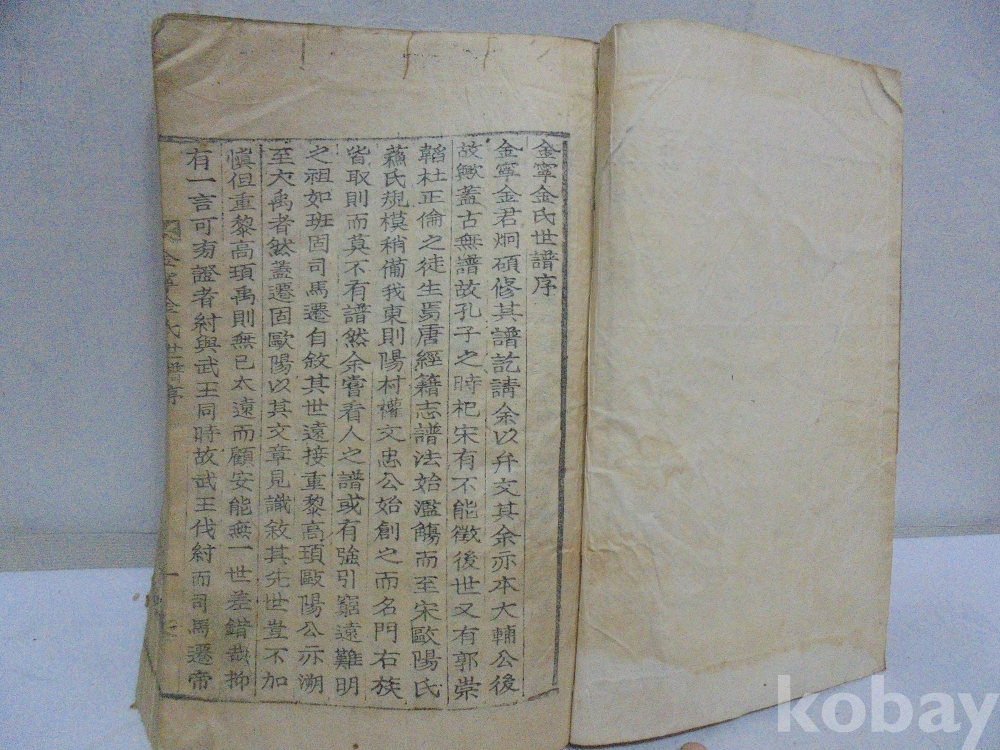 金寧金氏世譜序
金寧金君炯碩修其譜訖請余以弁文其余亦本大輔公後
故歟蓋古無譜故孔子之時杞宋有不能徵後世又有郭崇
韜杜正倫之徒生焉唐經籍志譜法始濫觴而至宋歐陽氏
蘓氏規模稍備我東則陽村權文忠公始創之而名門右族
皆取則而莫不有譜然余嘗看人之譜或有強引窮遠難明
之祖如班固司馬遷自敘其世遠接重黎高頊歐陽公亦溯
至大禹者然蓋遷固歐陽以其文章見識敘其先世豈不加
愼但重黎高頊禹則無已太遠而顧安能無一世差錯哉抑
有一言可旁證者紂與武王同時故武王伐紂而司馬遷帝
金寧金氏世譜序
一
kobay